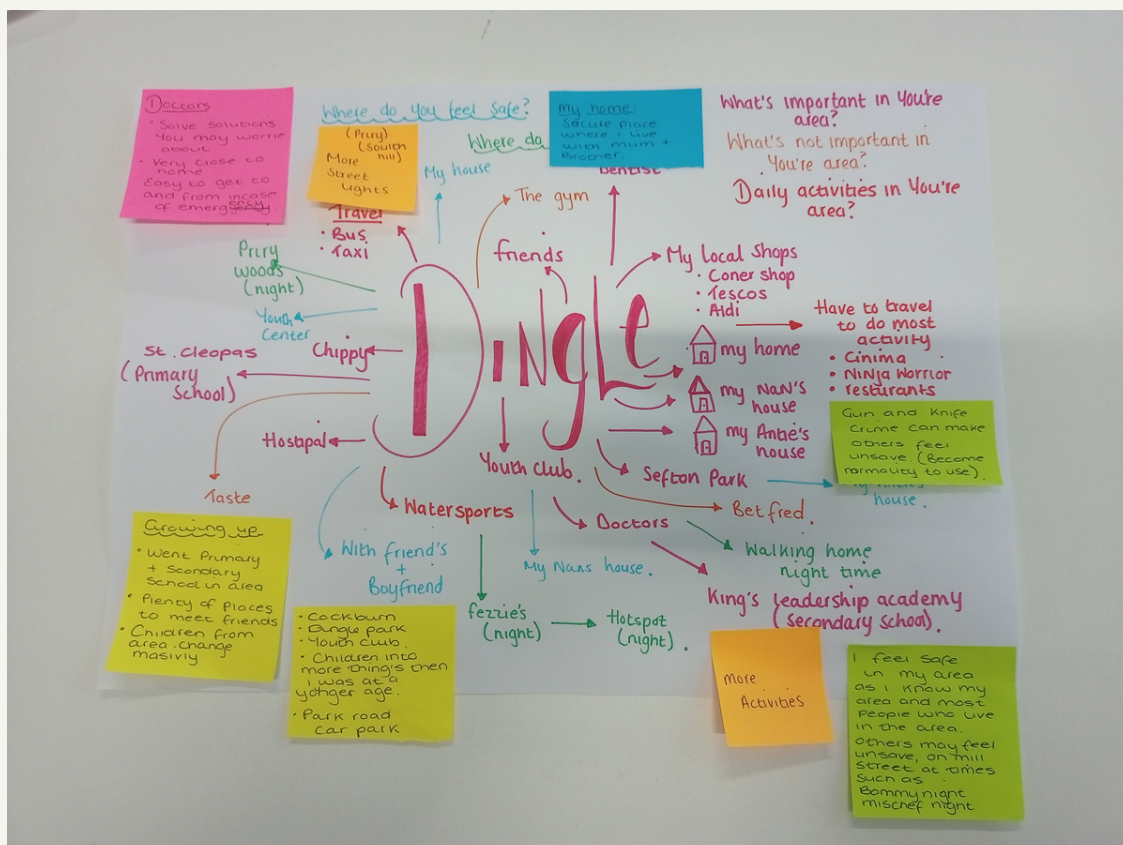 Doctors
• Solve solutions
You may worrie
about
• Very close to
home
Easy to get to
and from incase
of emergency.
Where do you feel safe?
(Pruy)
(South
hill)
More
Street
Lights
Where do
My home:
Secute place
where i live
with mum +
Brother.
What's important in You're
area?
What's not important in
You're area?
Daily activities in You're
area?
My house
The gym
Dentist
Travel
• Bus
• Taxi
friends
My Local Shops
• Coner shop
• Tescos
• Aldi
Priry
woods
(night)
Youth
Center
Chippy
St. Cleopas
(Primary
School)
Hostapal
Taste
DiNgLe
my home
my NaN's
house
my Antie's
house
Have to travel
to do most
activity
• Cinima
• Ninja Worrior
• resturants
Gun and Knife
Crime can make
others feel
unsave (Become
normality to use).
house.
Youth club.
Sefton Park
Betfred.
Watersports
Doctors
Walking home
night time
With friend's
+
Boyfriend
My Nans house.
King's leadership academy
(secondary school).
fezzie's
(night)
Hotspot
(night).
Growing up
• Went Primary
+ Scondary
School in area
• Plenty of Places
to meet friends
• Children from
area. Change
masivly
• Cockburn
• Dingle park
• Youth club.
• Children into
more thing's then
i was at a
yonger age.
• Park road
Car park
More
Activities
I feel safe
in my area
as i know my
area and most
People who live
in the area.
Others may feel
unsave, on mill
street at times
such as
Bommynight
mischef night